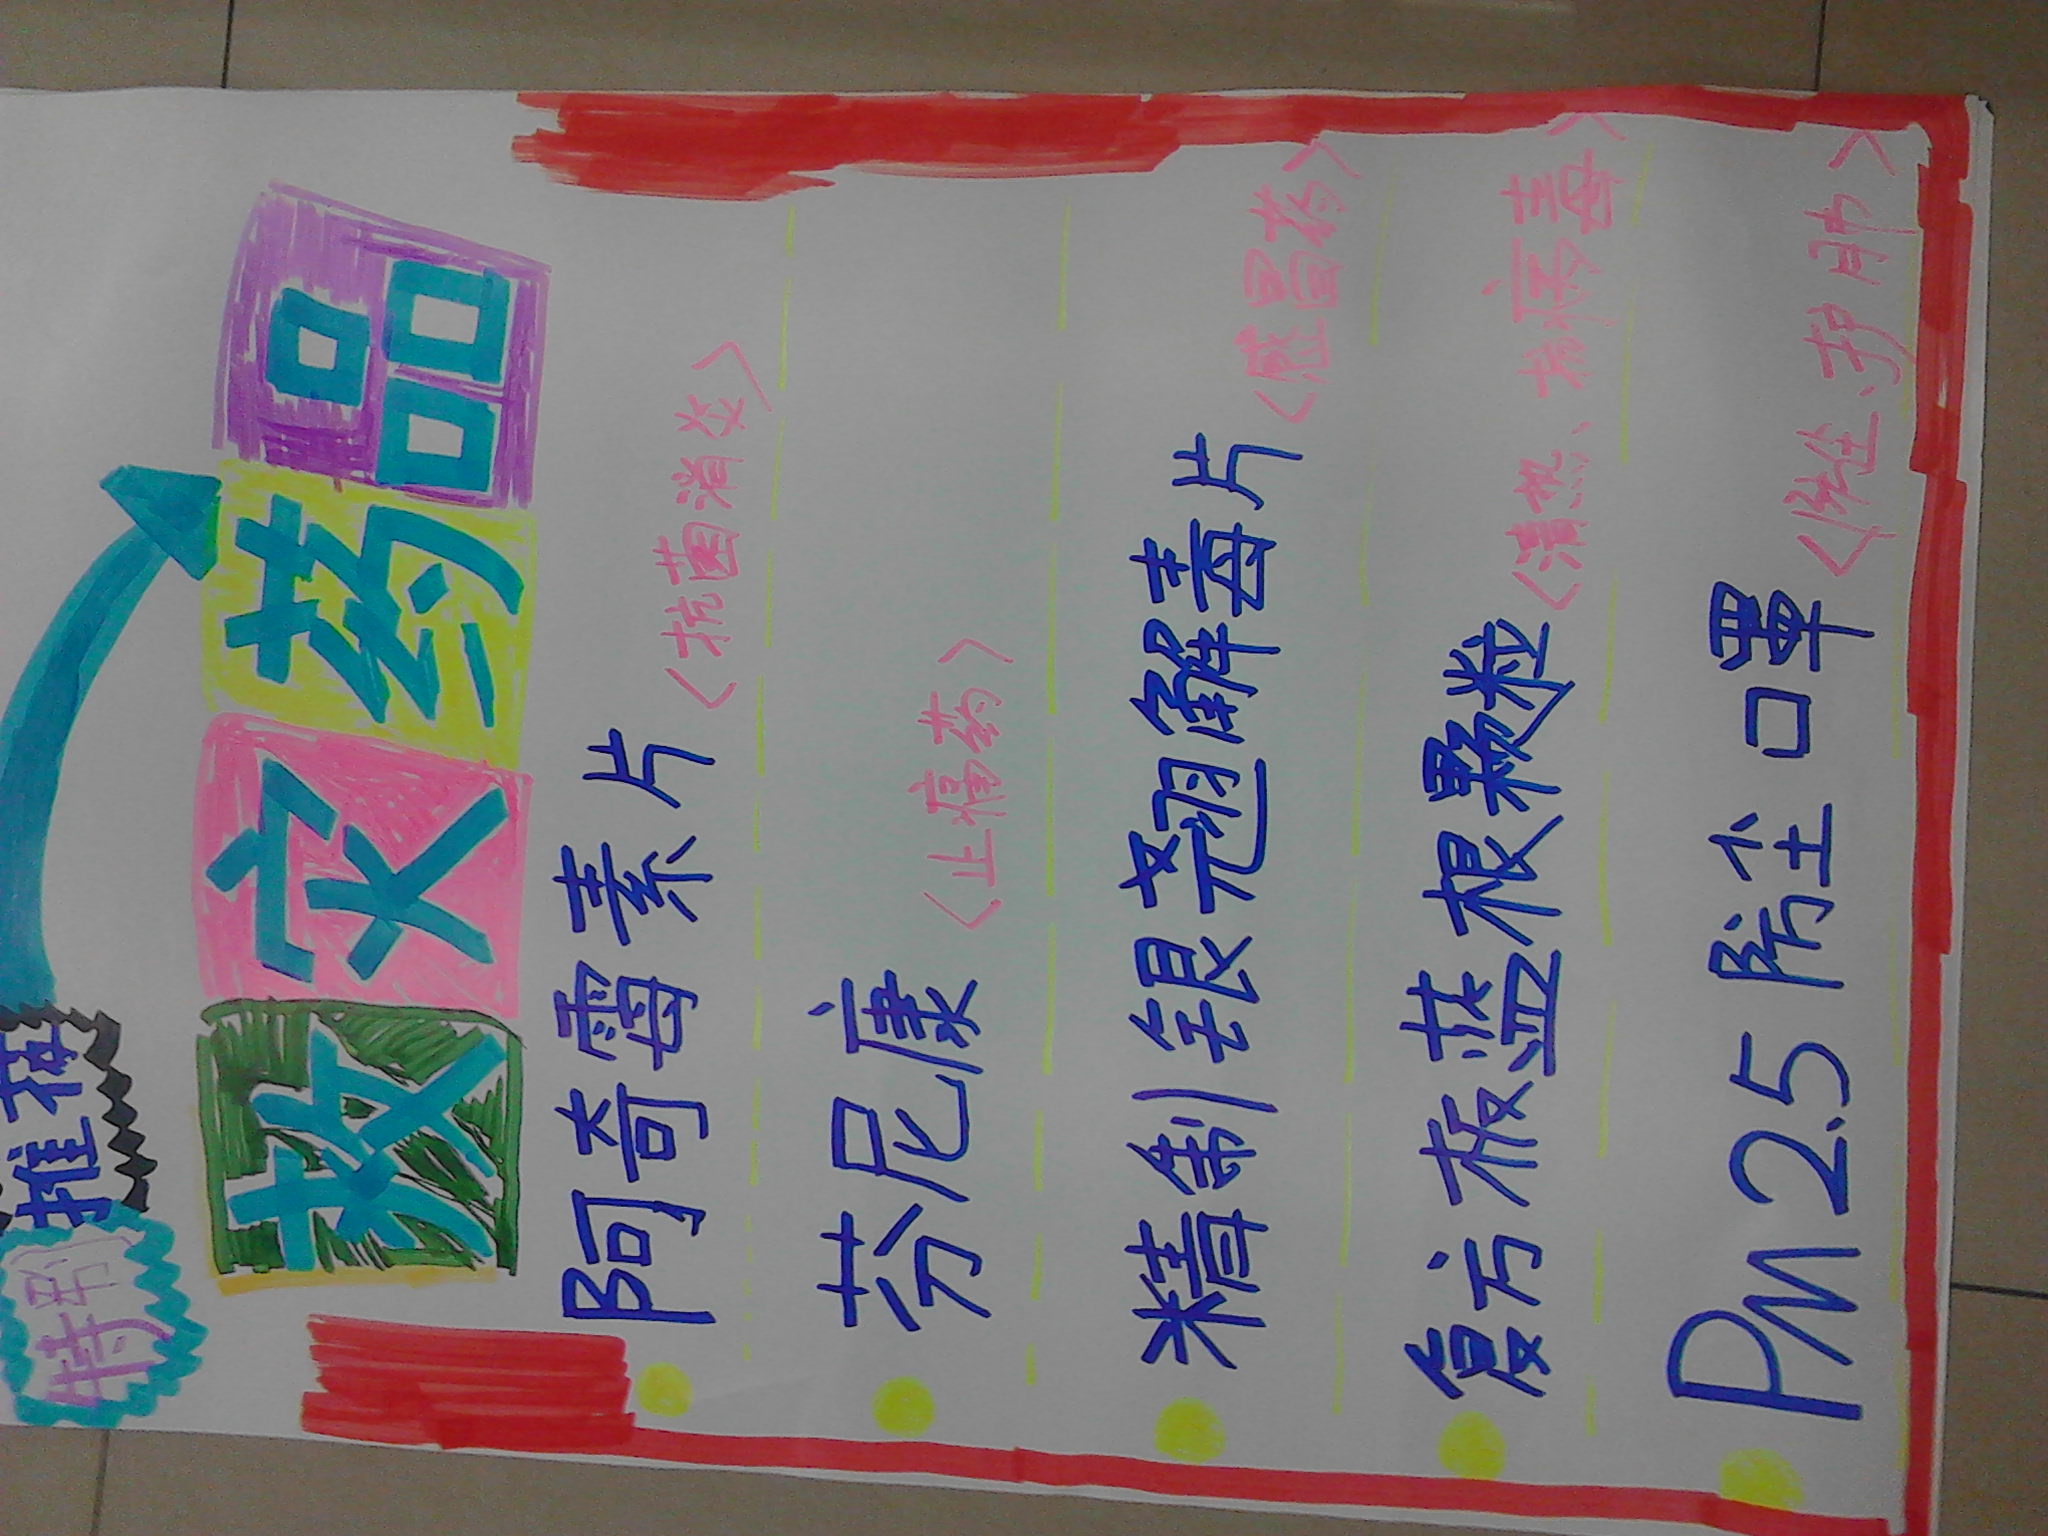 特别
推荐
救灾药品
阿奇霉素片<抗菌消炎>
芬尼康<止痛药>
精制银翘解毒片<感冒药>
复方板蓝根颗粒<清热、抗病毒>
PM2.5防尘口罩<除尘、护肺>